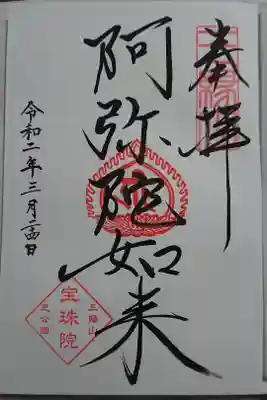 奉拝
阿弥陀如来
令和二年三月二四日
三縁山
宝珠院
芝公園